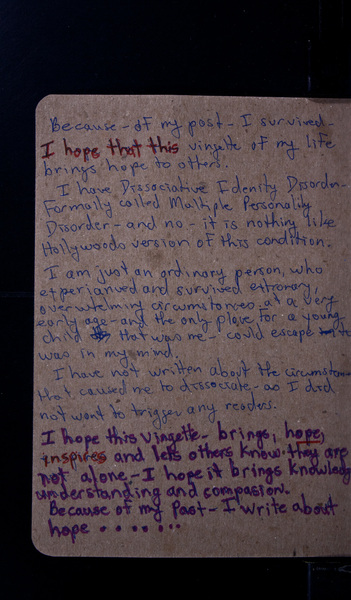 Because - of my past - I survived -
I hope that this vingette of my life
brings hope to others.
I have Dissociative Idenity Disorder -
Formally called Multiple Personality
Disorder - and no - it is nothing like
Hollywoods version of this condition.
I am just an ordinary person, who
experianved and survived extronary,
overwhelming circumstances at a very
early age - and the only place for a young
child that was me - could escape to
was in my mind.
I have not written about the circumstances
that caused me to dissociate - as I did
not want to trigger any readers.
I hope this vingette - brings, hope,
inspires and lets others know they are
not alone. - I hope it brings knowledg
understanding and compasion.
Because of my Past - I write about
hope . . . . . . .